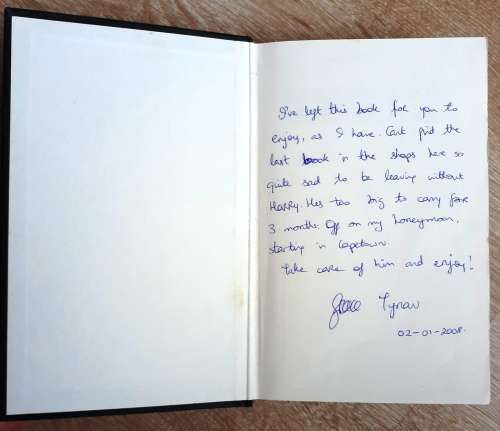 I've left this book for you to
enjoy, as I have. Cant find the
last book in the shops here so
quite sad to be leaving without
Harry. Hes too big to carry for
3 months. Off on my honeymoon,
starting in Capetown.
Take care of him and enjoy!
Tynan
02-01-2008.